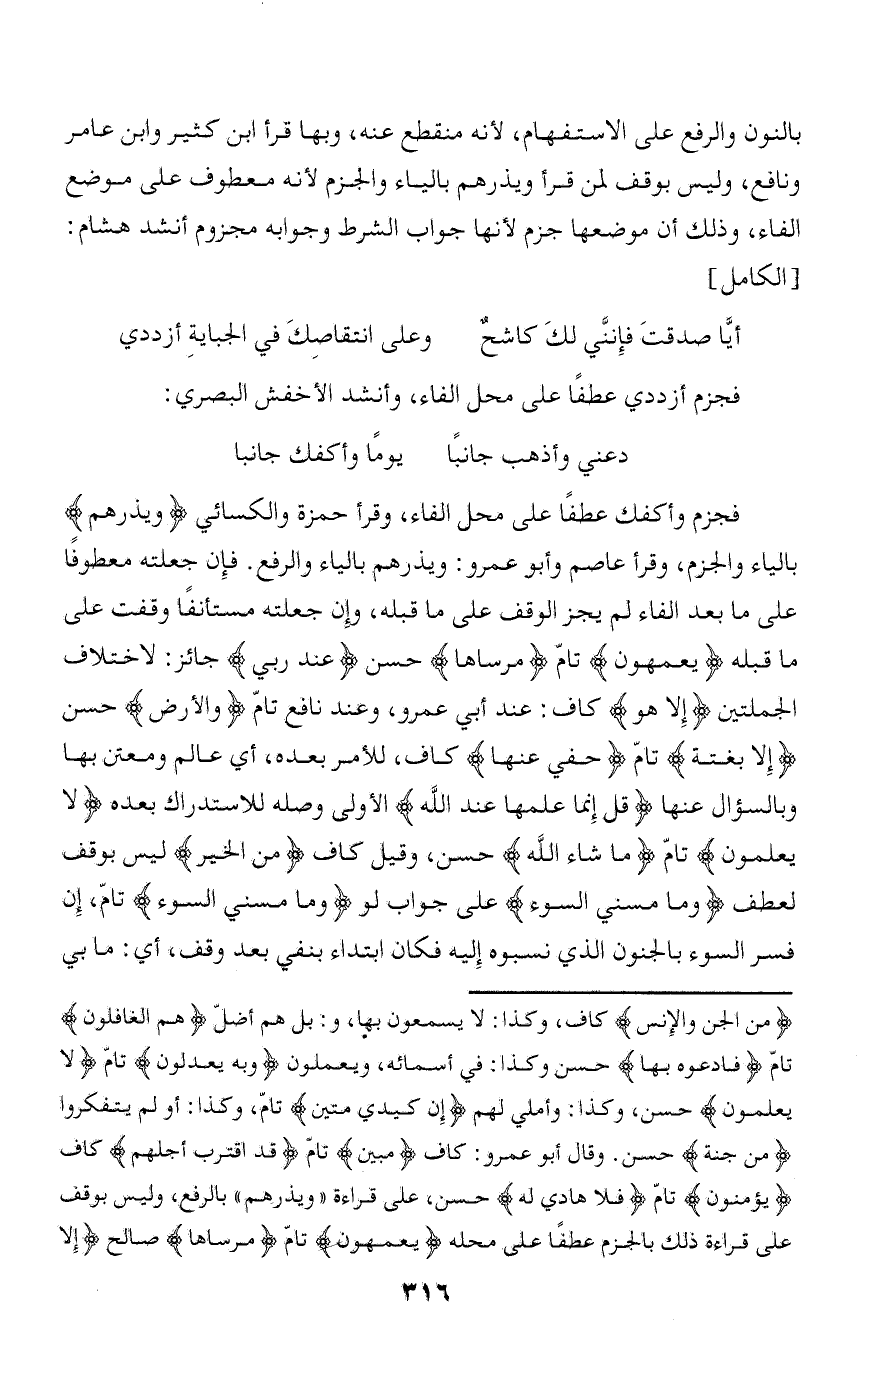 بالنون والرفع على الاستفهام، لأنه منقطع عنه، وبها قرأ ابن كثير وابن عامر
ونافع، وليس بوقف لمن قرأ ويذرهم بالياء والجزم لأنه معطوف على موضع
الفاء، وذلك أن موضعها جزم لأنها جواب الشرط وجوابه مجزوم أنشد هشام:
[الكامل]
أيًّا صدقتَ فإننَّي لكَ كاشحٌ وعلى انتقاصِكَ في الجبايةِ أزددي
فجزم أزددي عطفًا على محل الفاء، وأنشد الأخفش البصري:
دعني وأذهب جانبًا يومًا وأكفك جانبا
فجزم وأكفك عطفًا على محل الفاء، وقرأ حمزة والكسائي ﴿ويذرهم﴾
بالياء والجزم، وقرأ عاصم وأبو عمرو: ويذرهم بالياء والرفع. فإن جعلته معطوفًا
على ما بعد الفاء لم يجز الوقف على ما قبله، وإن جعلته مستأنفًا وقفت على
ما قبله ﴿يعمهون﴾ تامّ ﴿مرساها﴾ حسن ﴿عند ربي﴾ جائز: لاختلاف
الجملتين ﴿إلا هو﴾ كاف: عند أبي عمرو، وعند نافع تامّ ﴿والأرض﴾ حسن
﴿إلا بغتة﴾ تامّ ﴿حفي عنها﴾ كاف، للأمر بعده، أي عالم ومعتن بها
وبالسؤال عنها ﴿قل إنما علمها عند اللَّه﴾ الأولى وصله للاستدراك بعده ﴿لا
يعلمون﴾ تامّ ﴿ما شاء اللَّه﴾ حسن، وقيل كاف ﴿من الخير﴾ ليس بوقف
لعطف ﴿وما مسني السوء﴾ على جواب لو ﴿وما مسني السوء﴾ تامّ، إن
فسر السوء بالجنون الذي نسبوه إليه فكان ابتداء بنفي بعد وقف، أي: ما بي
﴿من الجن والإنس﴾ كاف، وكذا: لا يسمعون بها، و: بل هم أضلّ ﴿هم الغافلون﴾
تامّ ﴿فادعوه بها﴾ حسن وكذا: في أسمائه، ويعملون ﴿وبه يعدلون﴾ تامّ ﴿لا
يعلمون﴾ حسن، وكذا: وأملي لهم ﴿إن كيدي متين﴾ تامّ، وكذا: أو لم يتفكروا
﴿من جنة﴾ حسن. وقال أبو عمرو: كاف ﴿مبين﴾ تامّ ﴿قد اقترب أجلهم﴾ كاف
﴿يؤمنون﴾ تامّ ﴿فلا هادي له﴾ حسن، على قراءة «ويذرهم» بالرفع، وليس بوقف
على قراءة ذلك بالجزم عطفًا على محله ﴿يعمهون﴾ تامّ ﴿مرساها﴾ صالح ﴿إلا
٣١٦